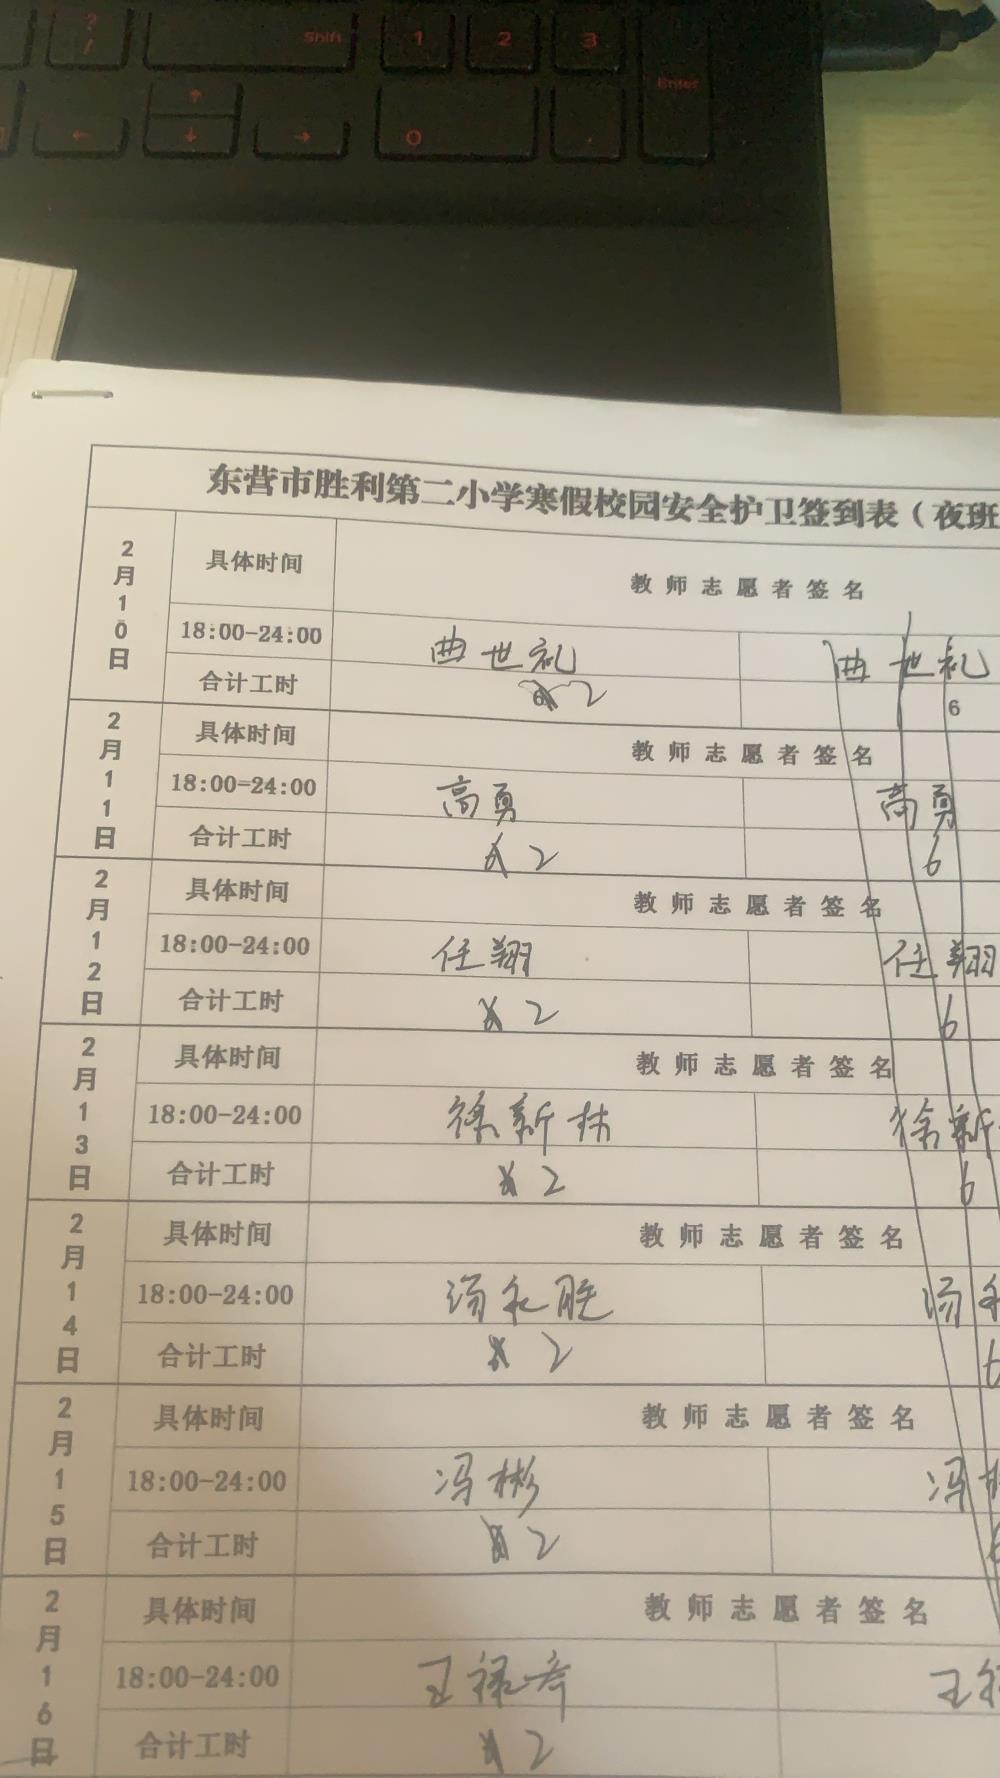 ? / Shift 1 2 3
Enter
↑
← ↓ → 0 .
东营市胜利第二小学寒假校园安全护卫签到表（夜班
2月10日
具体时间 教师志愿者签名
18:00-24:00 曲世礼 曲世礼
合计工时 2 6
2月11日
具体时间 教师志愿者签名
18:00=24:00 高勇 高勇
合计工时 2 6
2月12日
具体时间 教师志愿者签名
18:00-24:00 任翔 任翔
合计工时 2 6
2月13日
具体时间 教师志愿者签名
18:00-24:00 徐新林 徐新
合计工时 2 6
2月14日
具体时间 教师志愿者签名
18:00-24:00 汤永胜 汤
合计工时 2 6
2月15日
具体时间 教师志愿者签名
18:00-24:00 冯彬 冯
合计工时 2
2月16日
具体时间 教师志愿者签名
18:00-24:00 王禄 王
合计工时 2